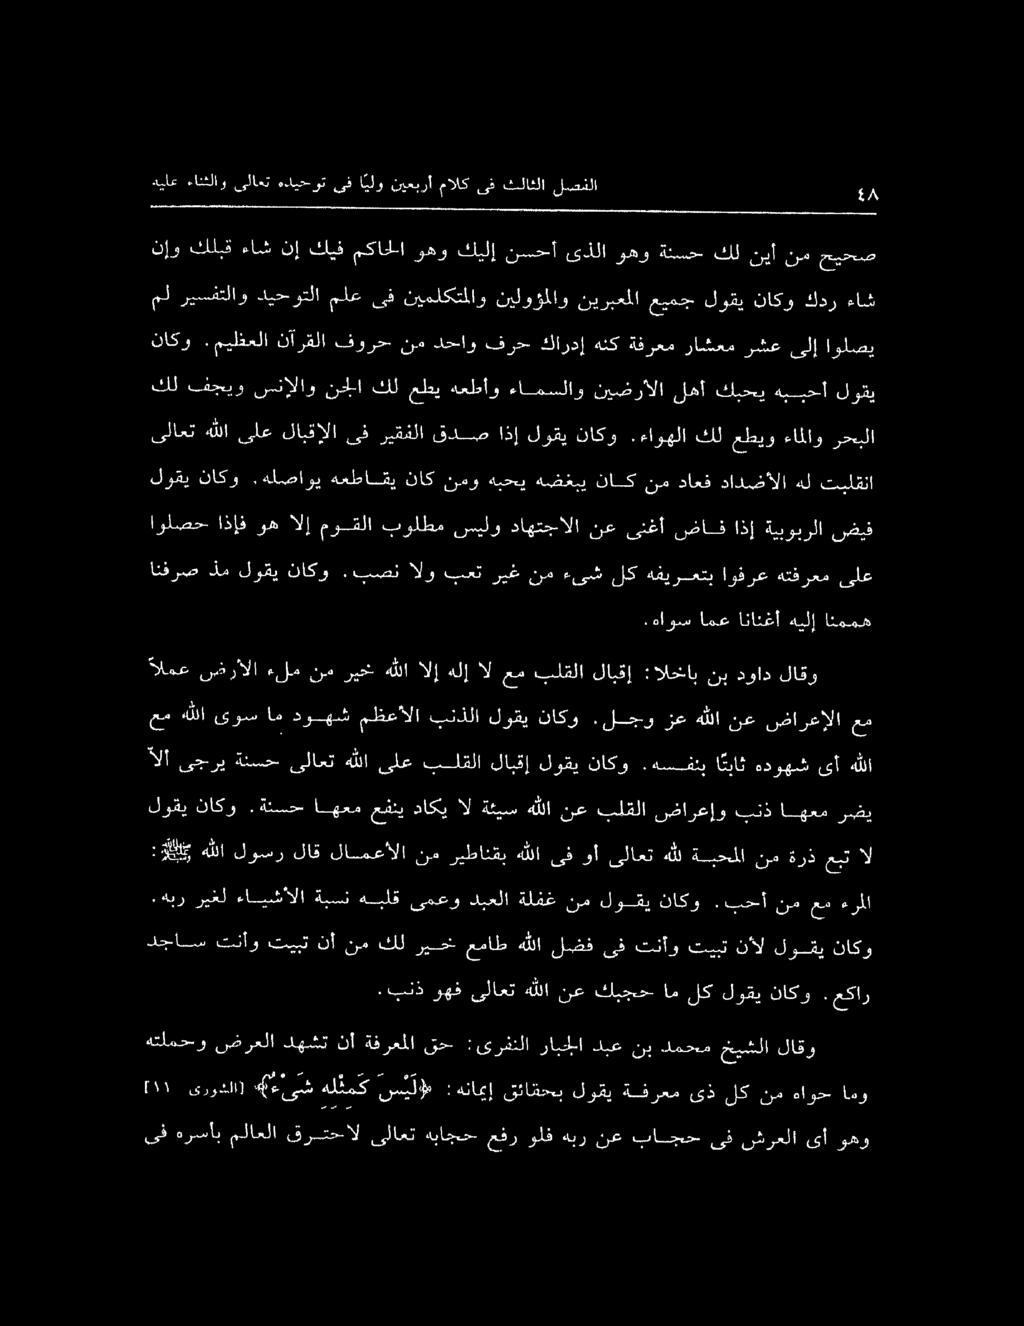 ٤٨ الفصل الثالث فى كلام أربعين وليًا فى توحيده تعالى والثناء عليه
صحيح من أين لك حسنة وهو الذى أحسن إليك وهو الحاكم فيك إن شاء قبلك وإن
شاء ردك وكان يقول جميع المعبرين والمؤولين والمتكلمين فى علم التوحيد والتفسير لم
يصلوا إلى عشر معشار معرفة كنه إدراك حرف واحد من حروف القرآن العظيم. وكان
يقول أحببه يحبك أهل الأرضين والسماء وأطعه يطع لك الجن والإنس ويجف لك
البحر والماء ويطع لك الهواء. وكان يقول إذا صدق الفقير فى الإقبال على الله تعالى
انقلبت له الأضداد فعاد من كان يبغضه يحبه ومن كان يقاطعه يواصله. وكان يقول
فيض الربوبية إذا فاض أغنى عن الاجتهاد وليس مطلوب القوم إلا هو فإذا حصلوا
على معرفته عرفوا بتعريفه كل شىء من غير تعب ولا نصب. وكان يقول مذ صرفنا
هممنا إليه أغنانا عما سواه.
وقال داود بن باخلا: إقبال القلب مع لا إله إلا الله خير من ملء الأرض عملاً
مع الإعراض عن الله عز وجل. وكان يقول الذنب الأعظم شهود ما سوى الله مع
الله أى شهوده ثابتًا بنفسه. وكان يقول إقبال القلب على الله تعالى حسنة يرجى ألاَّ
يضر معها ذنب وإعراض القلب عن الله سيئة لا يكاد ينفع معها حسنة. وكان يقول
لا تبع ذرة من المحبة لله تعالى أو فى الله بقناطير من الأعمال قال رسول الله ﷺ:
المرء مع من أحب. وكان يقول من غفلة العبد وعمى قلبه نسبة الأشياء لغير ربه.
وكان يقول لأن تبيت وأنت فى فضل الله طامع خير لك من أن تبيت وأنت ساجد
راكع. وكان يقول كل ما حجبك عن الله تعالى فهو ذنب.
وقال الشيخ محمد بن عبد الجبار النفرى: حق المعرفة أن تشهد العرض وحملته
وما حواه من كل ذى معرفة يقول بحقائق إيمانه: ﴿لَيْسَ كَمِثْلِهِ شَىْءٌ﴾ [الشورى ١١]
وهو أى العرش فى حجاب عن ربه فلو رفع حجابه تعالى لاحترق العالم بأسره فى